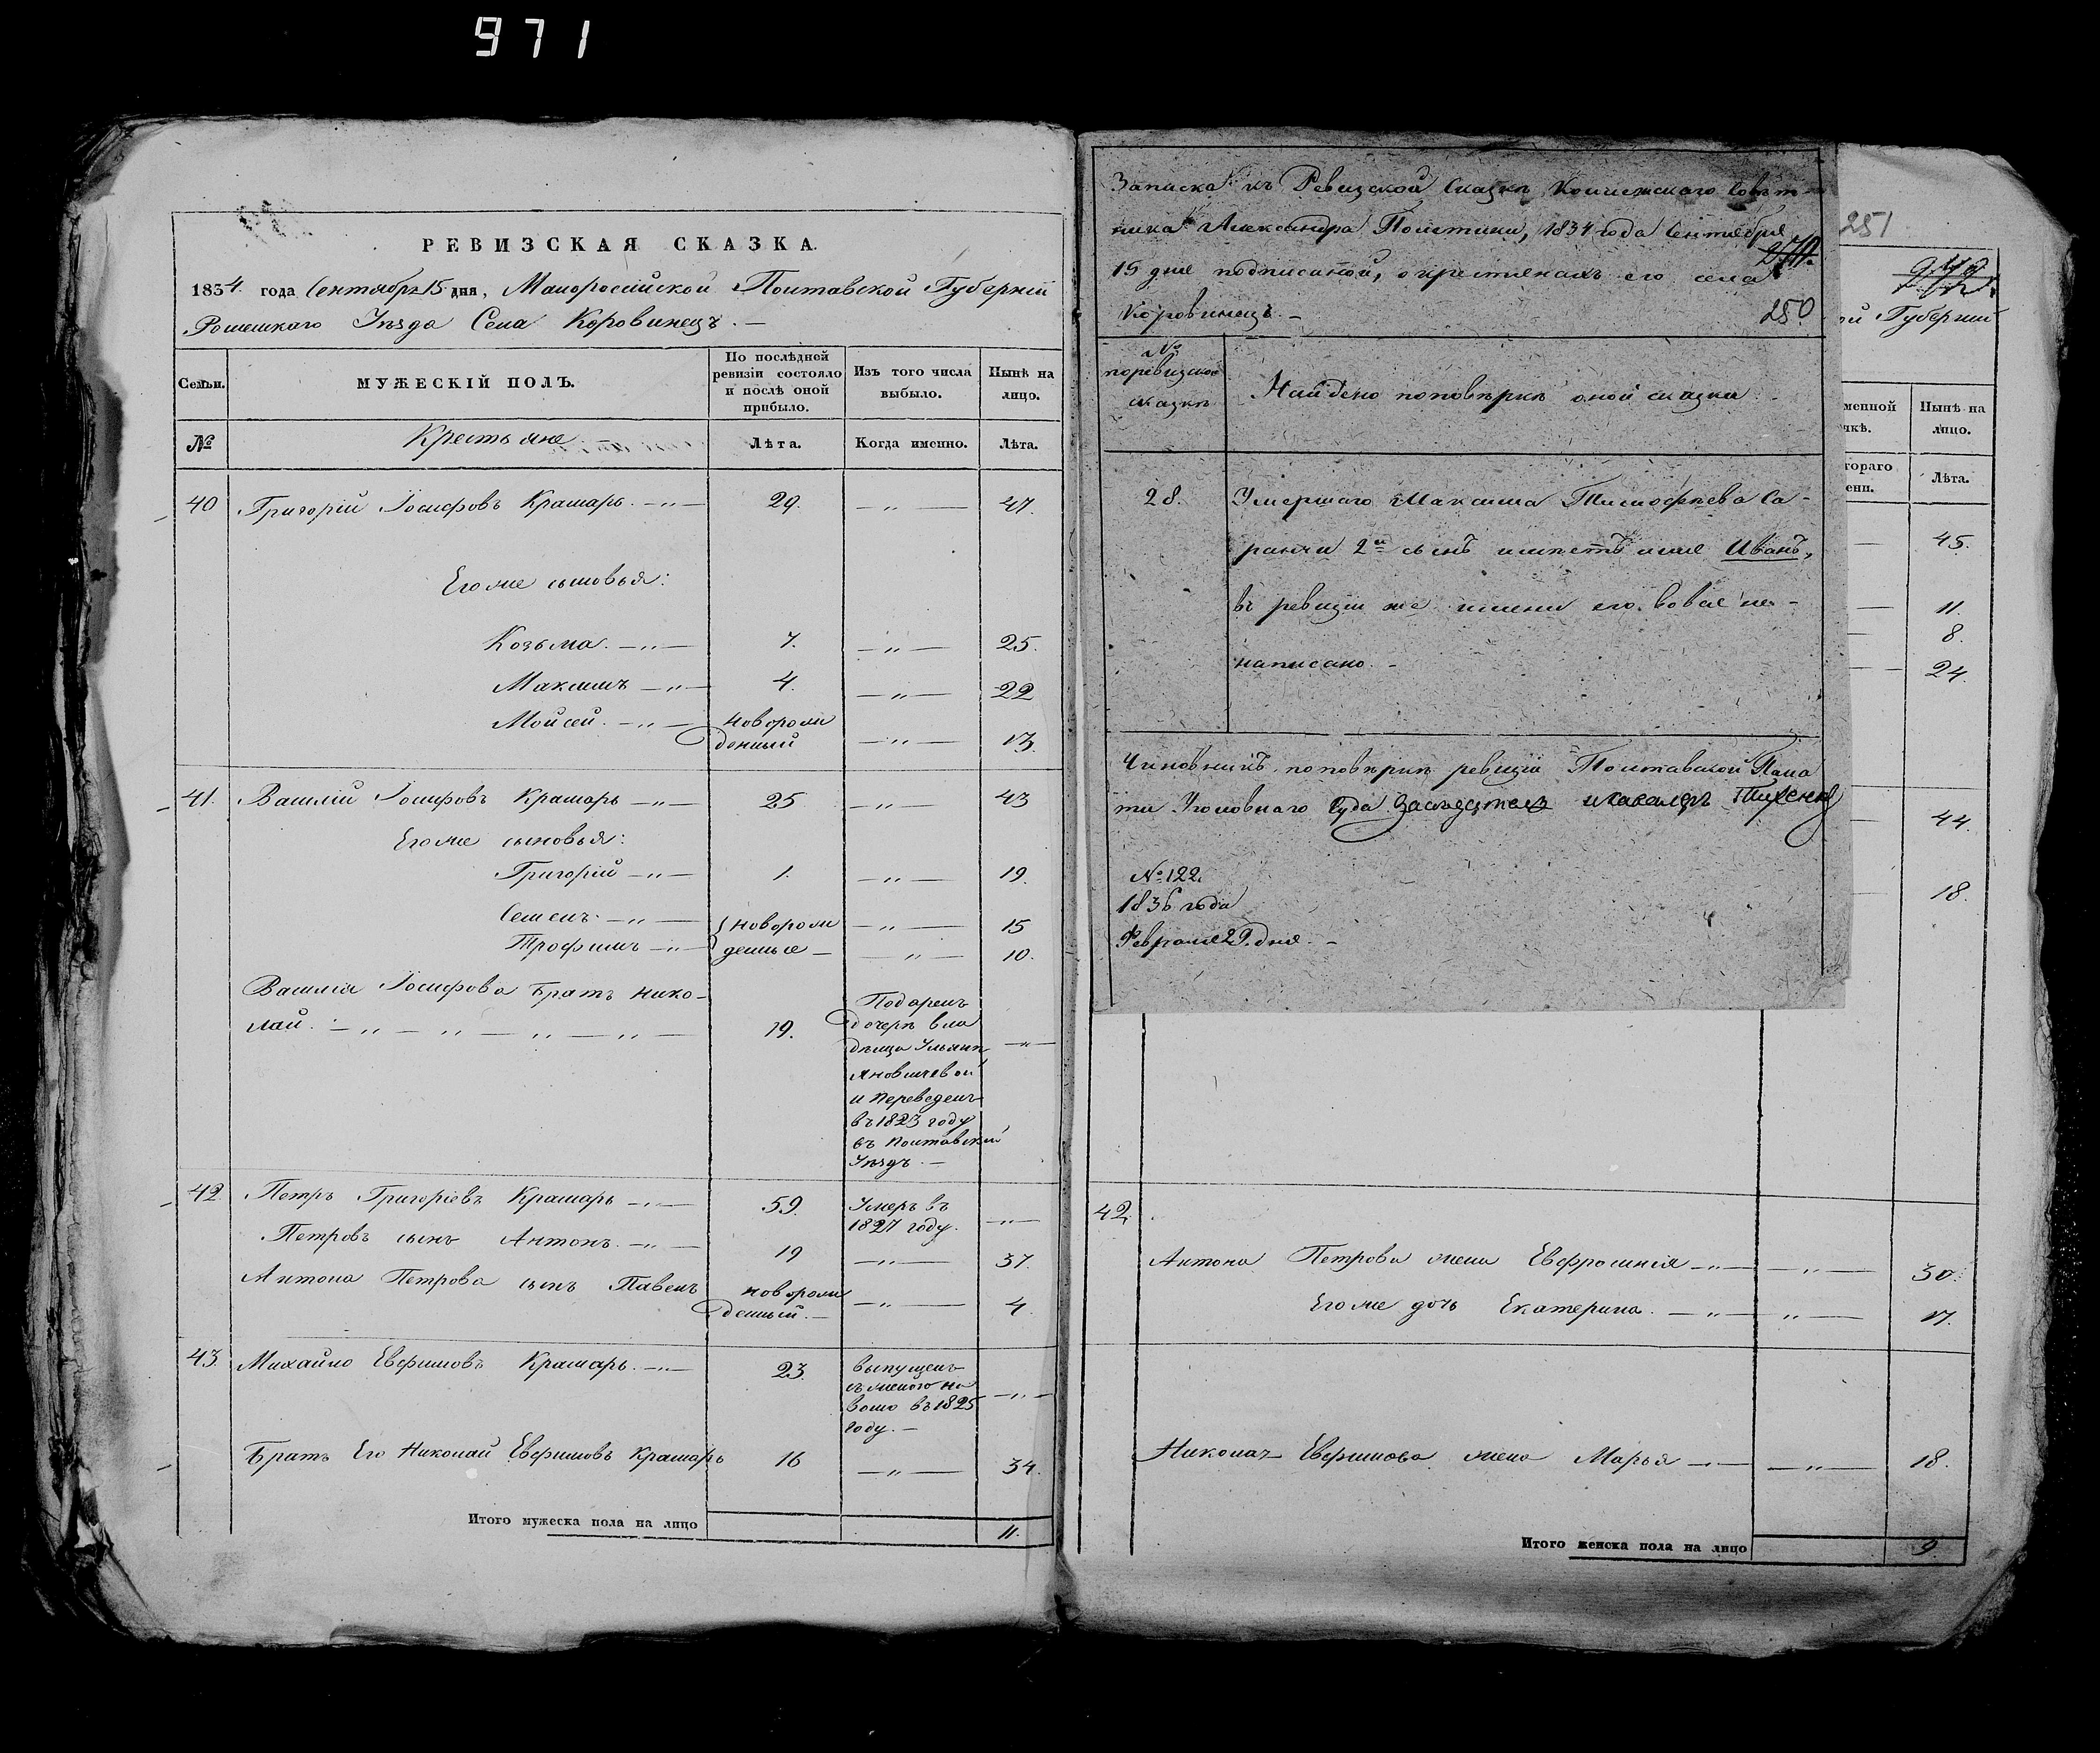 971
РЕВИЗСКАЯ СКАЗКА.
1834. года Сентября 15 дня, Малоросійской Полтавской Губерніи
Роменскаго Уѣзда Села Коровинецъ. —
Семьи.
МУЖЕСКІЙ ПОЛЪ.
По послѣдней ревизіи состояло и послѣ оной прибыло.
Изъ того числа выбыло.
Нынѣ на лицо.
№
Крестьяне
Лѣта.
Когда именно.
Лѣта.
40 Григорій Іосифовъ Крамарь. —„— 29. —„— 47.
Его же сыновья:
Козьма. —„— 7. —„— 25.
Максимъ —„— 4. —„— 22
Мойсей. —„— новорож
денный —„— 13.
41. Василій Іосифовъ Крамарь —„— 25 —„— 43
Его же сыновья:
Григорій —„— 1. —„— 19.
Семенъ. —„— новорож —„— 15
Трофимъ —„— денные — —„— 10.
Василія Іосифова Братъ Нико-
лай. —„—„—„—„— 19. —„—
Подаренъ
дочерѣ вла
дѣльца Ульянѣ
Яновичевой
и Переведенъ
въ 1823 году
въ Полтавскій
Уѣздъ. —
42. Петръ Григоріевъ Крамарь —„— 59. Умеръ въ
1827 году. —„—
Петровъ сынъ Антонъ. —„— 19 —„— 37.
Антона Петрова сынъ Павелъ новорож
денный. — —„— 4.
43. Михайло Евфимовъ Крамарь. —„— 23. выпущенъ
съ женою на
волю въ 1825
году. — —„—
Братъ Его Николай Евфимовъ Крамарь 16 —„— 34.
Итого мужеска пола на лицо 11.
Записка къ Ревизской Сказкѣ Коллежскаго Совѣт-
ника Александра Полетики, 1834 года Сентября
15 дня подписанной, о крестьянахъ его села
Коровинецъ. —
250
№ поревизской сказкѣ
Найдено поповѣркѣ оной сказки
28. Умершаго Максима Тимофѣева Са-
ранчи 2й сынъ имѣетъ имя Иванъ,
въ ревизіи же имени его вовсе не-
написано. —
Чиновникъ поповѣркѣ ревизіи Полтавской Пала
ты Уголовнаго Суда Засѣдатель
№ 122.
1836 года
Февраля 29. дня. —
251
ой Губерніи
менной
Нынѣ на лицо.
тораго
Лѣта.
45.
11.
8.
24.
44.
18.
42.
Антона Петрова жена Евфросинія —„— —„— 30.
Его же дочь Екатерина. —„— „— 17.
Николая Евфимова жена Марья —„— —„— 18.
Итого женска пола на лицо 9.